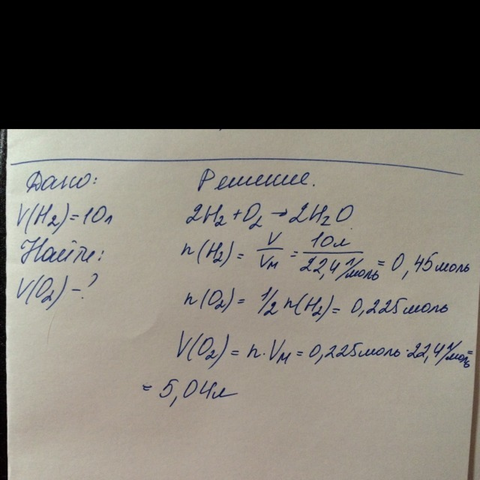 Дано:
V(H₂)=10л
Найти:
V(O₂)-?
Решение.
2H₂+O₂→2H₂O
n(H₂)= V/Vм = 10л/22,4 л/моль = 0,45 моль
n(O₂)= 1/2 n(H₂)= 0,225 моль
V(O₂)= n·Vм = 0,225 моль·22,4 л/моль =
= 5,04 л